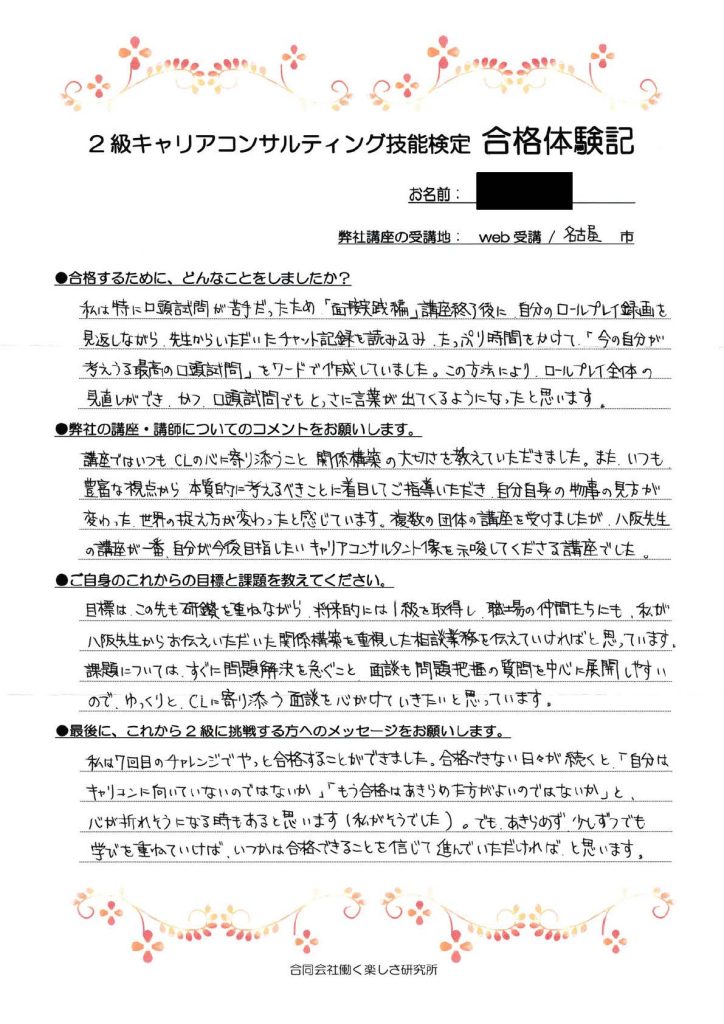 2級キャリアコンサルティング技能検定 合格体験記
お名前：
弊社講座の受講地： web受講 / 名古屋 市
●合格するために、どんなことをしましたか？
私は特に口頭試問が苦手だったため「面接実践編」講座終了後に、自分のロールプレイ録画を
見返しながら、先生からいただいたチャット記録を読み込み、たっぷり時間をかけて、「今の自分が
考えうる最高の口頭試問」をワードで作成していました。この方法により、ロールプレイ全体の
見直しができ、かつ、口頭試問でもとっさに言葉が出てくるようになったと思います。
●弊社の講座・講師についてのコメントをお願いします。
講座ではいつも CLの心に寄り添うこと、関係構築の大切さを教えていただきました。また、いつも
豊富な視点から、本質的に考えるべきことに着目してご指導いただき、自分自身の物事の見方が
変わった、世界の捉え方が変わったと感じています。複数の団体の講座を受けましたが、八阪先生
の講座が一番、自分が今後目指したいキャリアコンサルタント像を示唆してくださる講座でした。
●ご自身のこれからの目標と課題を教えてください。
目標は、この先も研鑽を重ねながら、将来的には1級を取得し、職場の仲間たちにも、私が
八阪先生からお伝えいただいた関係構築を重視した相談業務を伝えていければと思っています。
課題については、すぐに問題解決を急ぐこと、面談も問題把握の質問を中心に展開しやすい
ので、ゆっくりと、CLに寄り添う面談を心がけていきたいと思っています。
●最後に、これから2級に挑戦する方へのメッセージをお願いします。
私は7回目のチャレンジでやっと合格することができました。合格できない日々が続くと、「自分は
キャリコンに向いていないのではないか」「もう合格はあきらめた方がよいのではないか」と、
心が折れそうになる時もあると思います(私がそうでした)。でも、あきらめず、少しずつでも
学びを重ねていけば、いつかは合格できることを信じて進んでいただければ、と思います。
合同会社働く楽しさ研究所